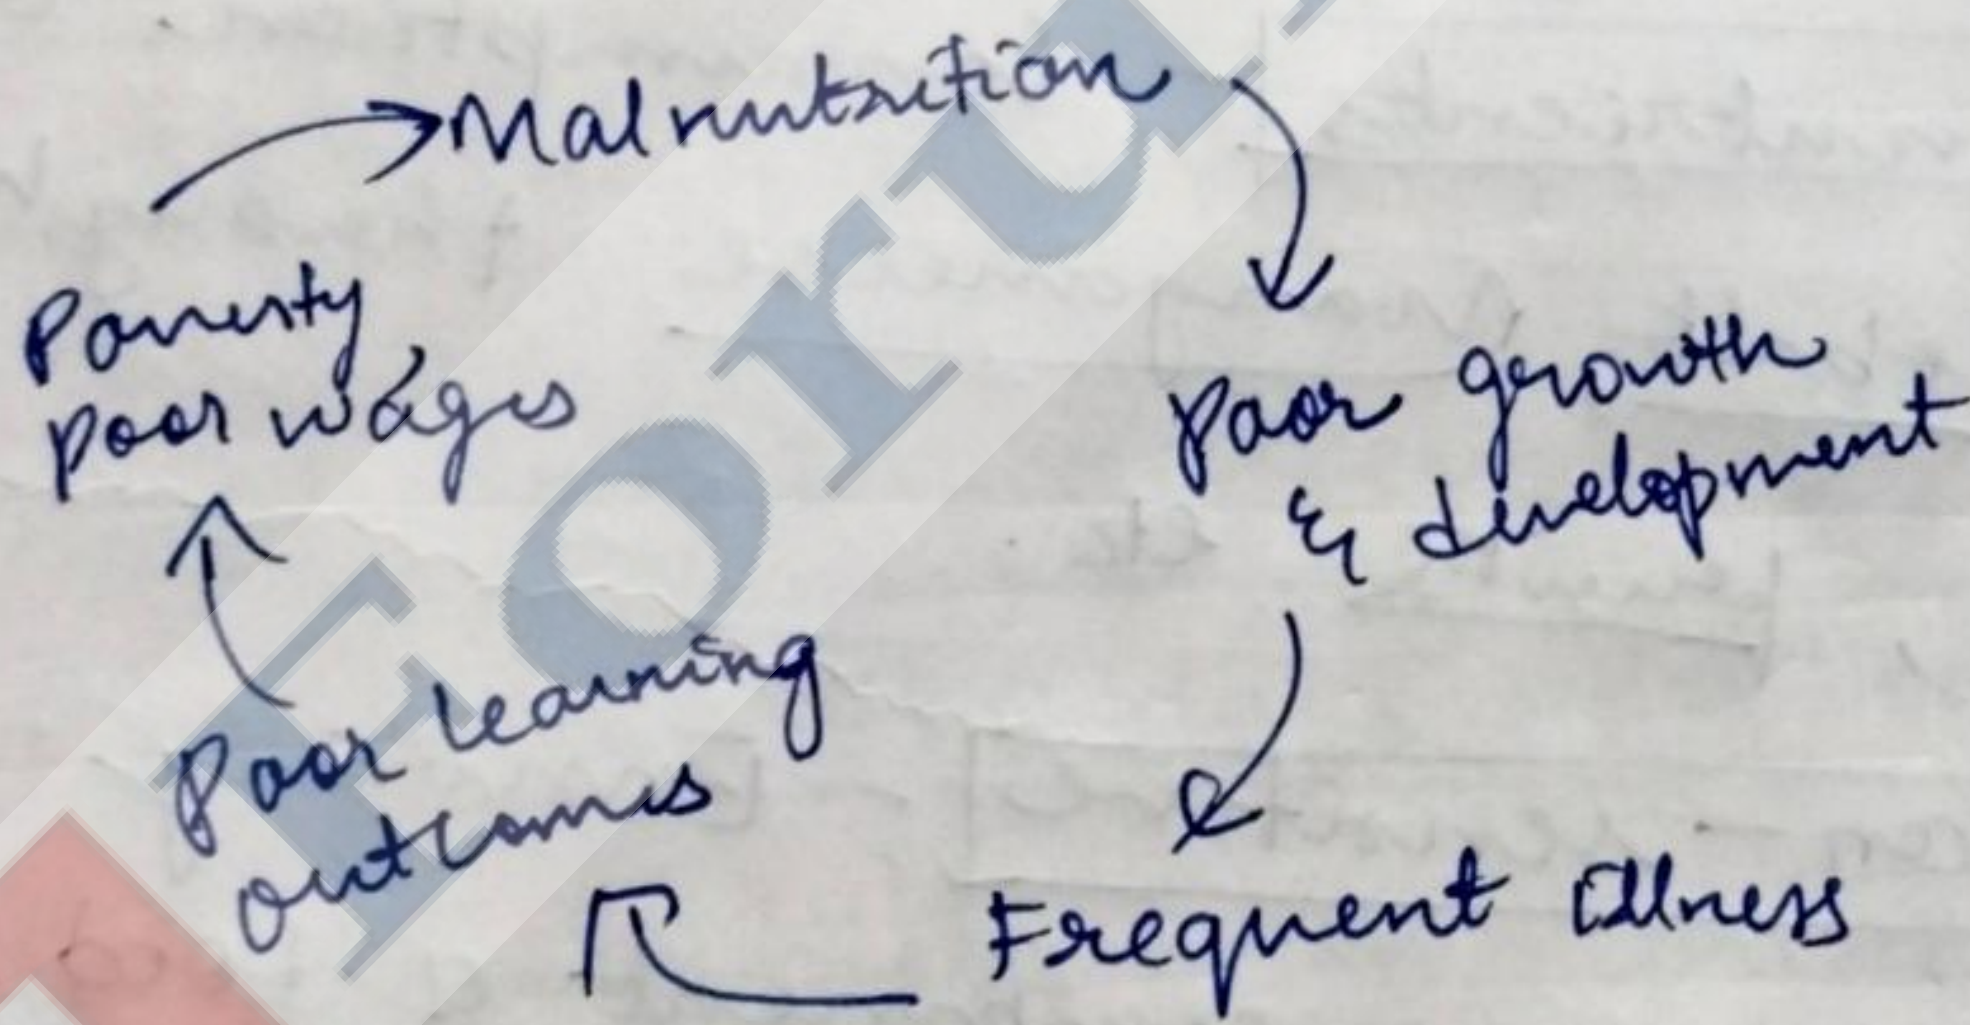 Malnutrition
Poverty
poor wages
Poor growth
& development
Poor learning
outcomes
Frequent illness
Foru